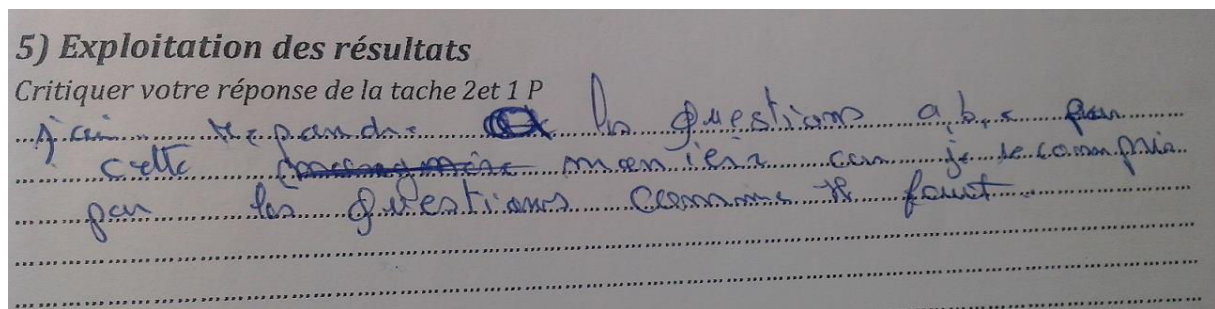 5) Exploitation des résultats
Critiquer votre réponse de la tache 2et 1 P
j'ai répandre les questions a, b, c par
cette manière car je comprie
par les questions comme il faut